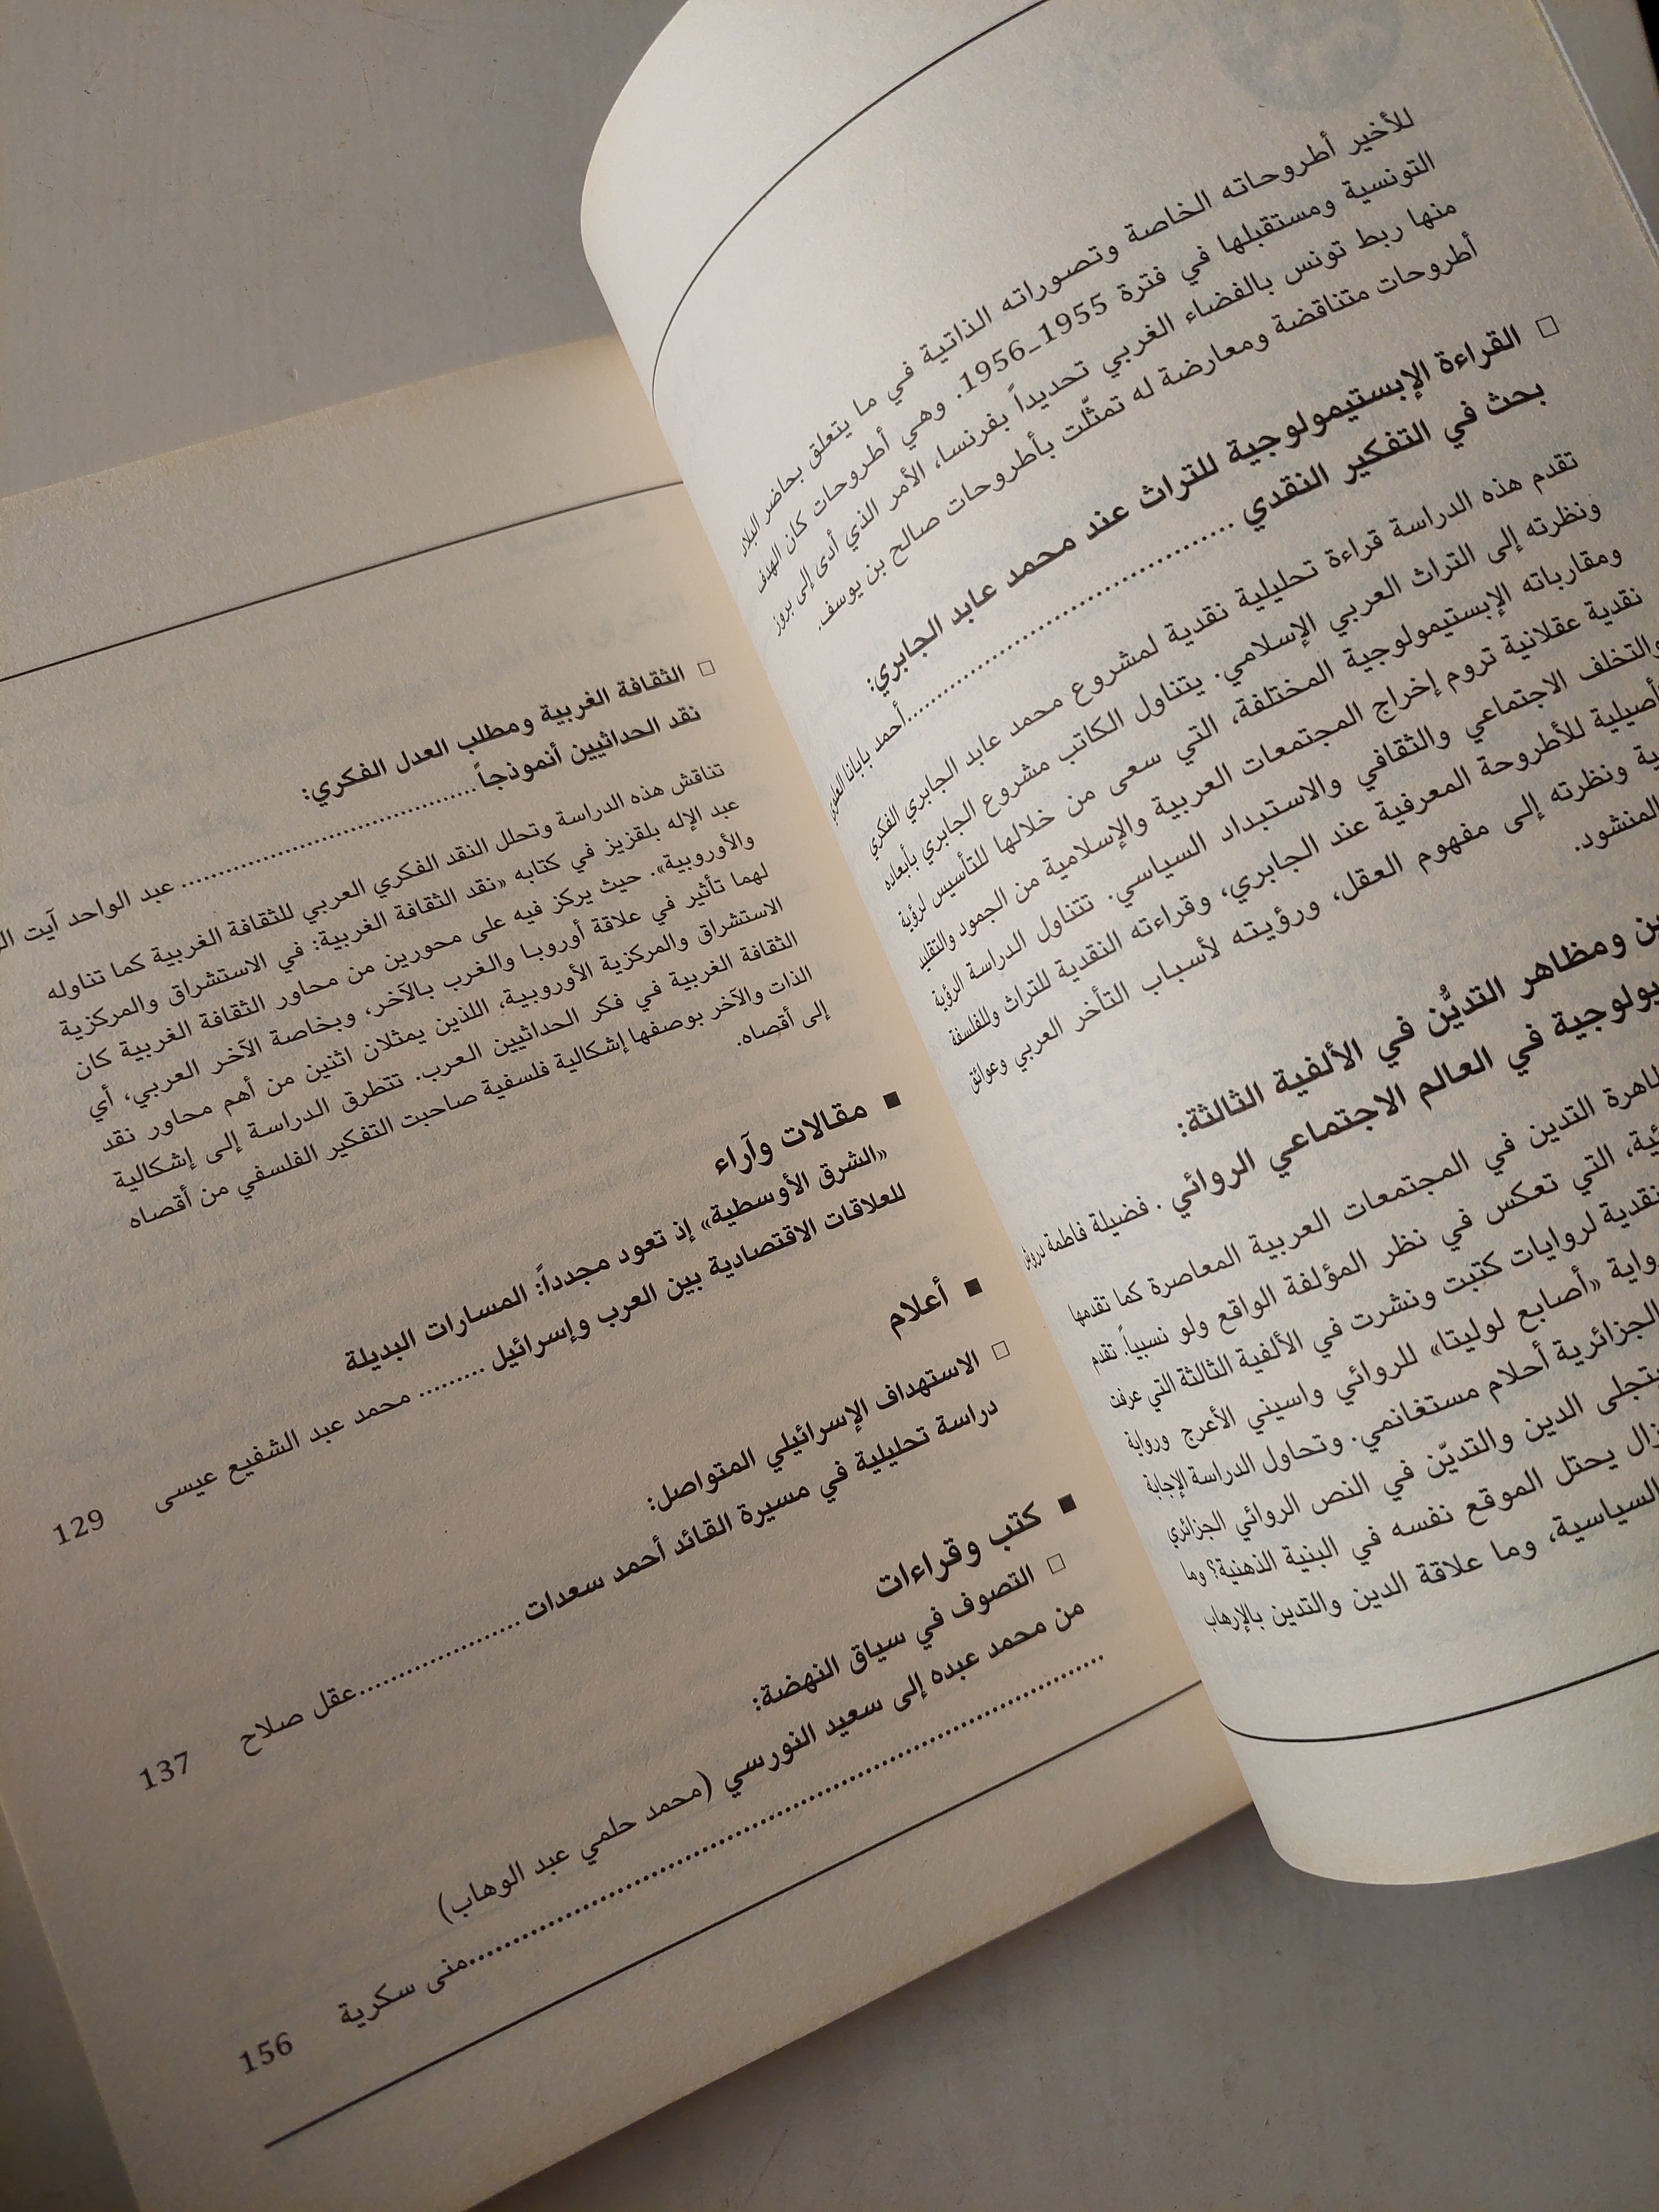 للأخير أطروحاته الخاصة وتصوراته الذاتية في ما يتعلق بحاضر البلاد
التونسية ومستقبلها في فترة 1955_1956. وهي أطروحات كان الهدف
منها ربط تونس بالفضاء الغربي تحديداً بفرنسا، الأمر الذي أدى إلى بروز
أطروحات متناقضة ومعارضة له تمثّلت بأطروحات صالح بن يوسف.
□ القراءة الإبستيمولوجية للتراث عند محمد عابد الجابري:
بحث في التفكير النقدي ........................................ أحمد بابانا
تقدم هذه الدراسة قراءة تحليلية نقدية لمشروع محمد عابد الجابري الفكري
ونظرته إلى التراث العربي الإسلامي. يتناول الكاتب مشروع الجابري بأبعاده
ومقارباته الإبستيمولوجية المختلفة، التي سعى من خلالها للتأسيس لرؤية
نقدية عقلانية تروم إخراج المجتمعات العربية والإسلامية من الجمود والتقليد
والتخلف الاجتماعي والثقافي والاستبداد السياسي. تتناول الدراسة الرؤية
أصيلية للأطروحة المعرفية عند الجابري، وقراءته النقدية للتراث وللفلسفة
ية ونظرته إلى مفهوم العقل، ورؤيته لأسباب التأخر العربي وعوائق
المنشود.
ين ومظاهر التديُّن في الألفية الثالثة:
بولوجية في العالم الاجتماعي الروائي . فضيلة فاطمة دروش
اهرة التدين في المجتمعات العربية المعاصرة كما تقدمها
ئية، التي تعكس في نظر المؤلفة الواقع ولو نسبياً. تقدم
نقدية لروايات كتبت ونشرت في الألفية الثالثة التي عرفت
واية «أصابع لوليتا» للروائي واسيني الأعرج ورواية
الجزائرية أحلام مستغانمي. وتحاول الدراسة الإجابة
تجلى الدين والتديّن في النص الروائي الجزائري
زال يحتل الموقع نفسه في البنية الذهنية؟ وما
السياسية، وما علاقة الدين والتدين بالإرهاب
□ الثقافة الغربية ومطلب العدل الفكري:
نقد الحداثيين أنموذجاً ........................................ عبد الواحد آيت
تناقش هذه الدراسة وتحلل النقد الفكري العربي للثقافة الغربية كما تناوله
عبد الإله بلقزيز في كتابه «نقد الثقافة الغربية: في الاستشراق والمركزية
والأوروبية». حيث يركز فيه على محورين من محاور الثقافة الغربية كان
لهما تأثير في علاقة أوروبا والغرب بالآخر، وبخاصة الآخر العربي، أي
الاستشراق والمركزية الأوروبية، اللذين يمثلان اثنين من أهم محاور نقد
الثقافة الغربية في فكر الحداثيين العرب. تتطرق الدراسة إلى إشكالية
الذات والآخر بوصفها إشكالية فلسفية صاحبت التفكير الفلسفي من أقصاه
إلى أقصاه.
■ مقالات وآراء
«الشرق الأوسطية» إذ تعود مجدداً: المسارات البديلة
للعلاقات الاقتصادية بين العرب وإسرائيل ......... محمد عبد الشفيع عيسى 129
■ أعلام
□ الاستهداف الإسرائيلي المتواصل:
دراسة تحليلية في مسيرة القائد أحمد سعدات ...................... عقل صلاح 137
■ كتب وقراءات
□ التصوف في سياق النهضة:
من محمد عبده إلى سعيد النورسي (محمد حلمي عبد الوهاب)
........................................................................ منى سكرية 156